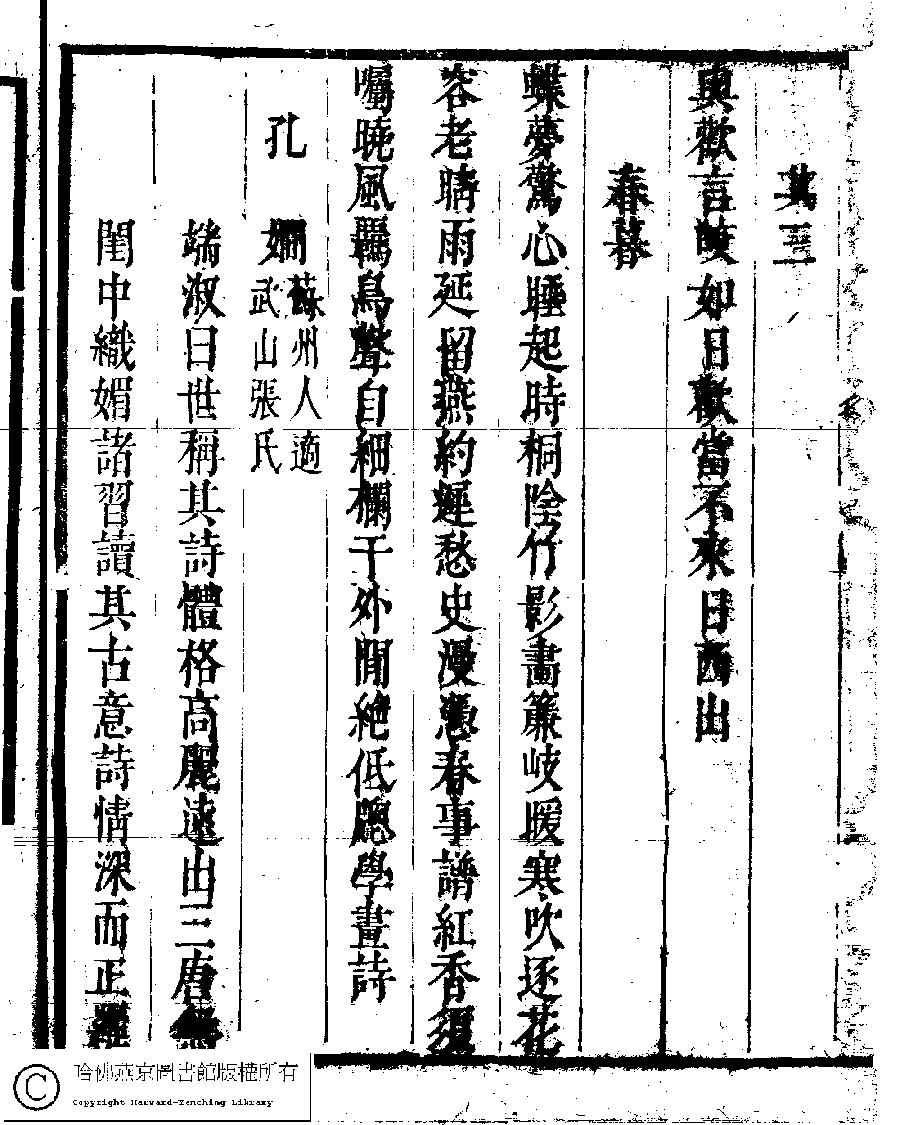 其三
與歡言皎如日歡當不來日西出
春暮
蝶夢驚心睡起時桐陰竹影畵簾岐暖寒吹逐花
容老晴雨延留燕約遲愁史漫憑春事譜紅香須
囑曉風羈鳥聲自細欄干外閒絶低鬟學畫詩
孔嫻
蘇州人適
武山張氏
端淑曰世稱其詩體格高麗遠出三唐
閨中織媚諸習讀其古意詩情深而正
哈佛燕京圖書館版權所有
Copyright Harvard-Yenching Library